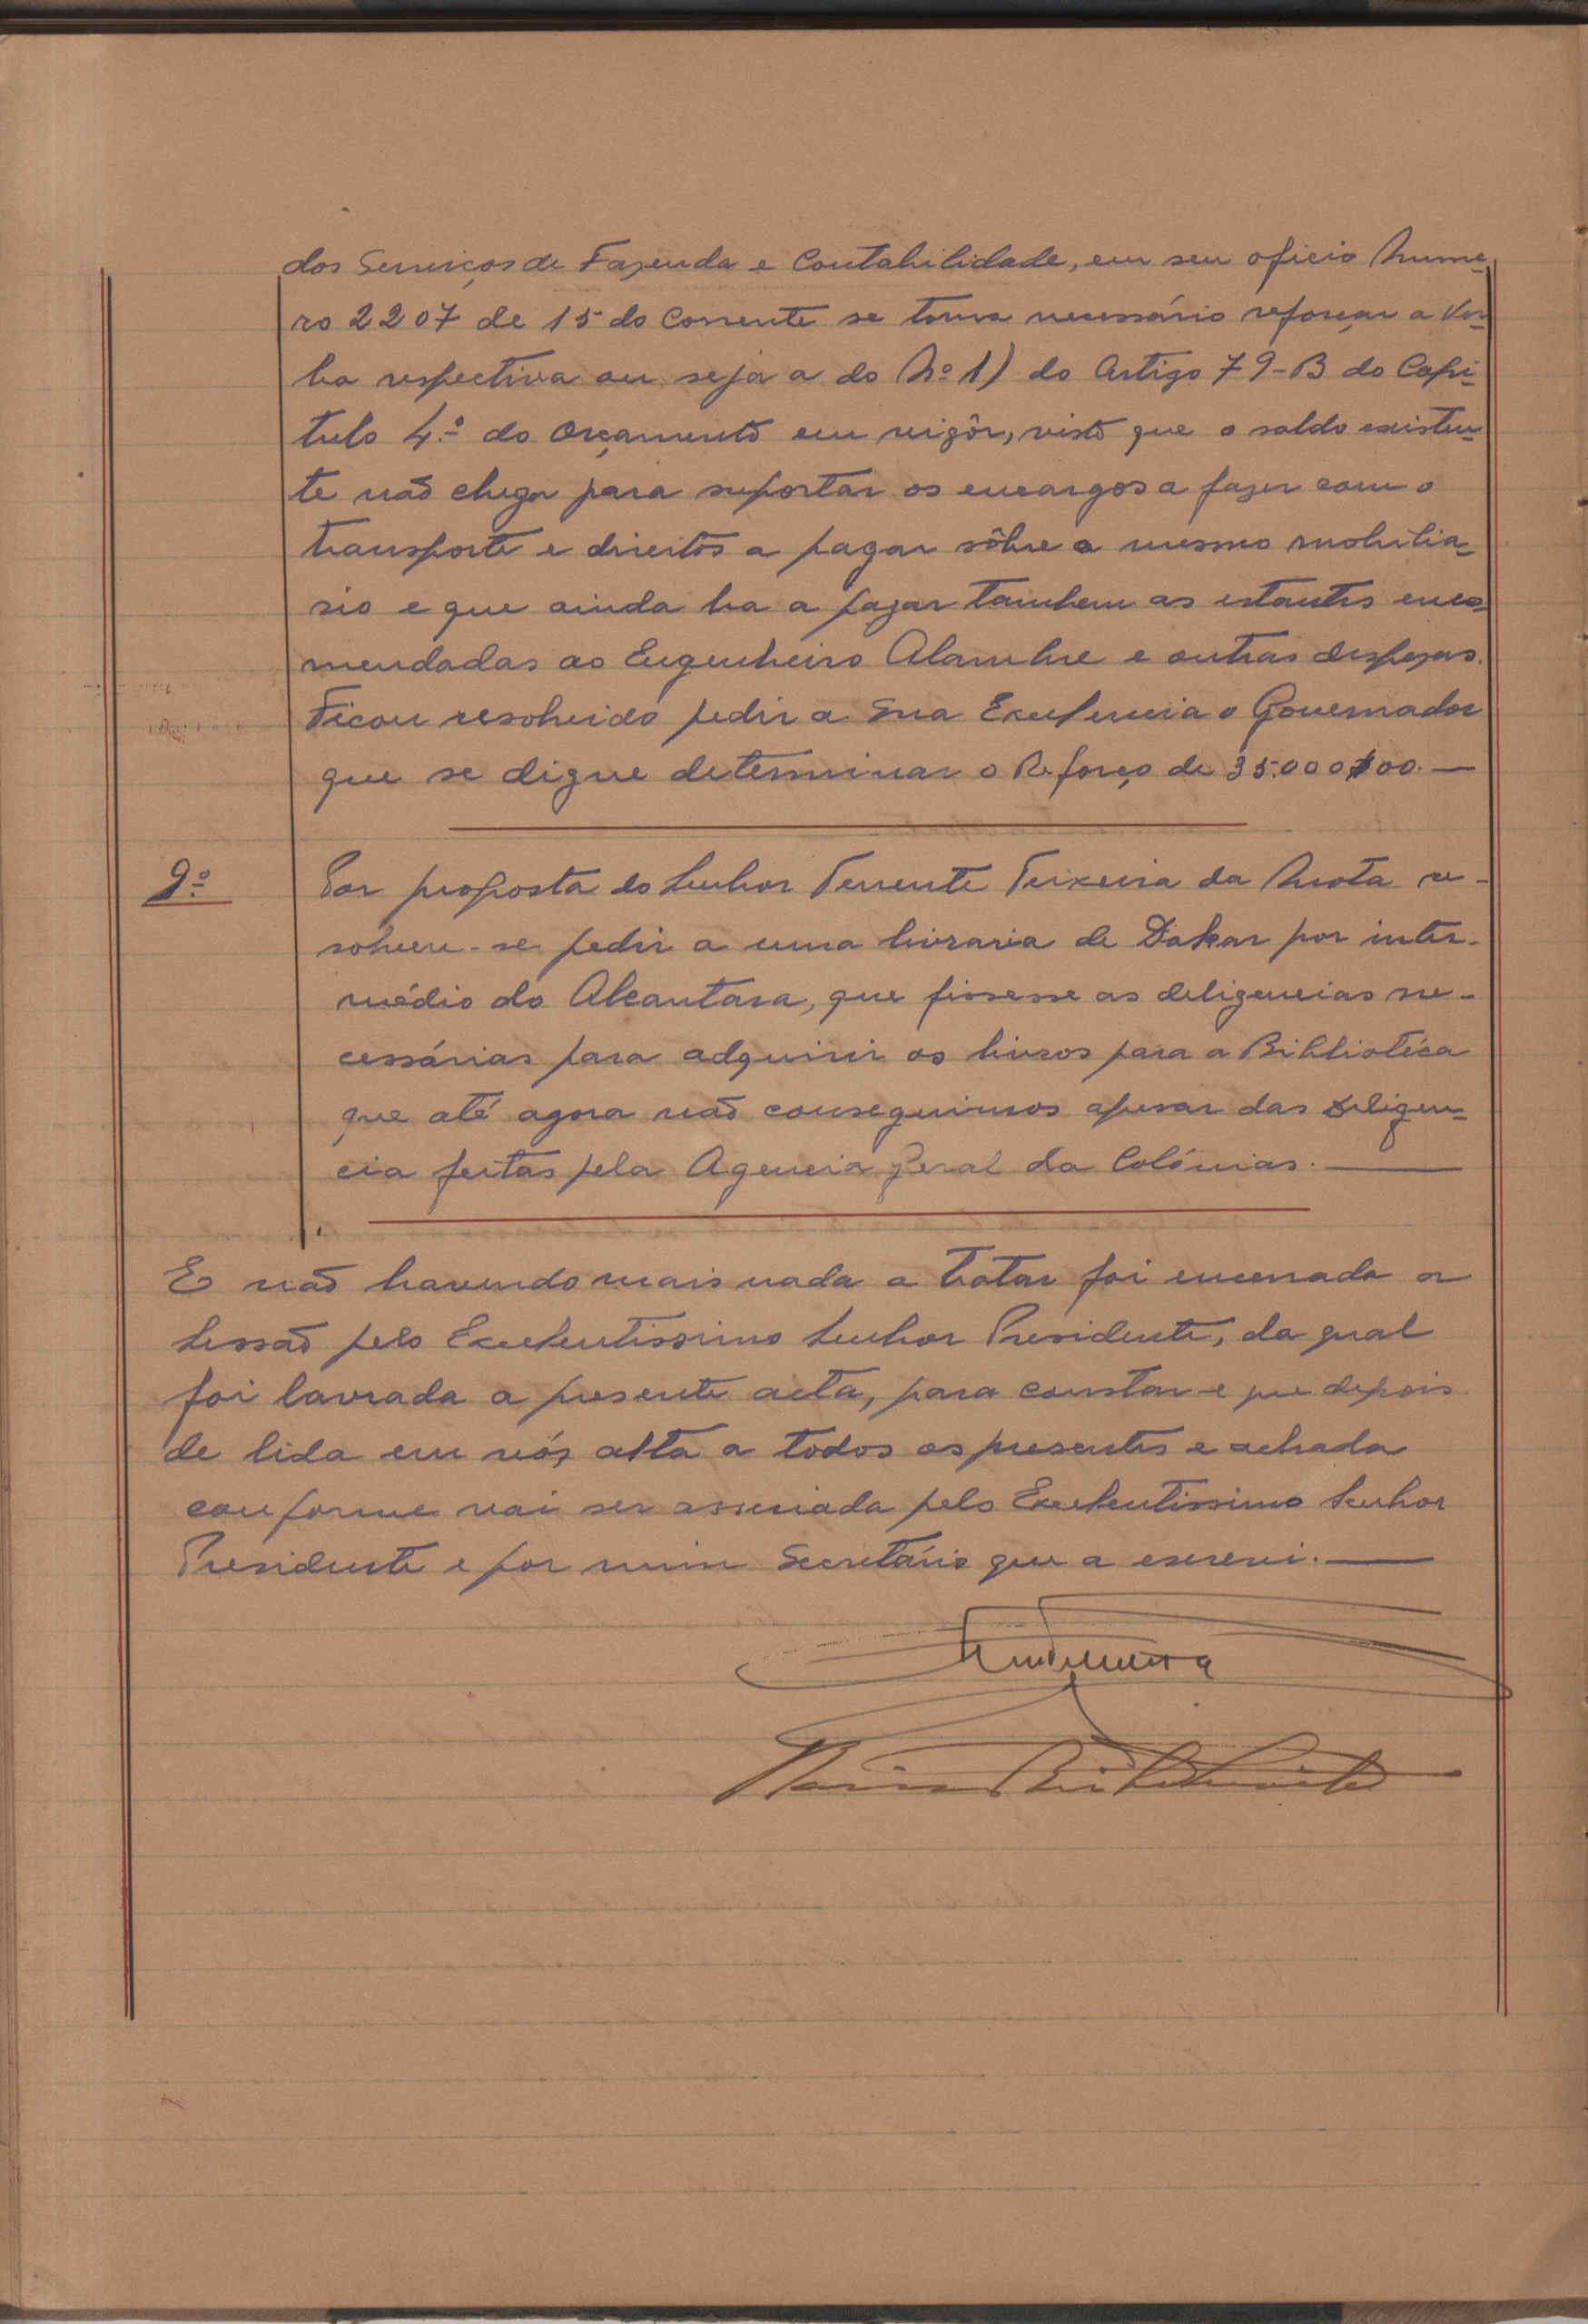 dos Serviços de Fazenda e Contabilidade, em seu oficio Nume-
ro 2207 de 15 do Corrente se torna necessário reforçar a Ver-
ba respectiva ou seja a do Nº 1) do Artigo 79-B do Capi-
tulo 4.º do Orçamento em vigôr, visto que o saldo existen-
te não chega para suportar os encargos a fazer com o
transporte e direitos a pagar sôbre o mesmo mobilia-
rio e que ainda ha a pagar tambem as estantes enco-
mendadas ao Engenheiro Alambre e outras despezas.
Ficou resolvido pedir a Sua Excelencia o Governador
que se digne determinar o Reforço de 35.000$00.—
9.º Por proposta do Senhor Tenente Teixeira da Mota re-
solveu-se pedir a uma livraria de Dakar por inter-
médio do Alcantara, que fissesse as deligencias ne-
cessárias para adquirir os livros para a Bibliotéca
que até agora não conseguimos apesar das Deligen-
cia feitas pela Agencia Geral da Colónias.—
E não havendo mais nada a tratar foi encerrada a
Sessão pelo Excelentissimo Senhor Presidente, da qual
foi lavrada a presente acta, para constar e que depois
de lida em vóz alta a todos os presentes e achada
conforme vai ser assinada pelo Excelentissimo Senhor
Presidente e por mim Secretário que a escrevi.—